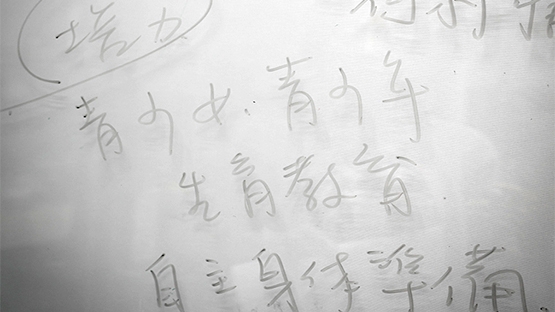 培力
青少女、青少年
生育教育
自主身体準備